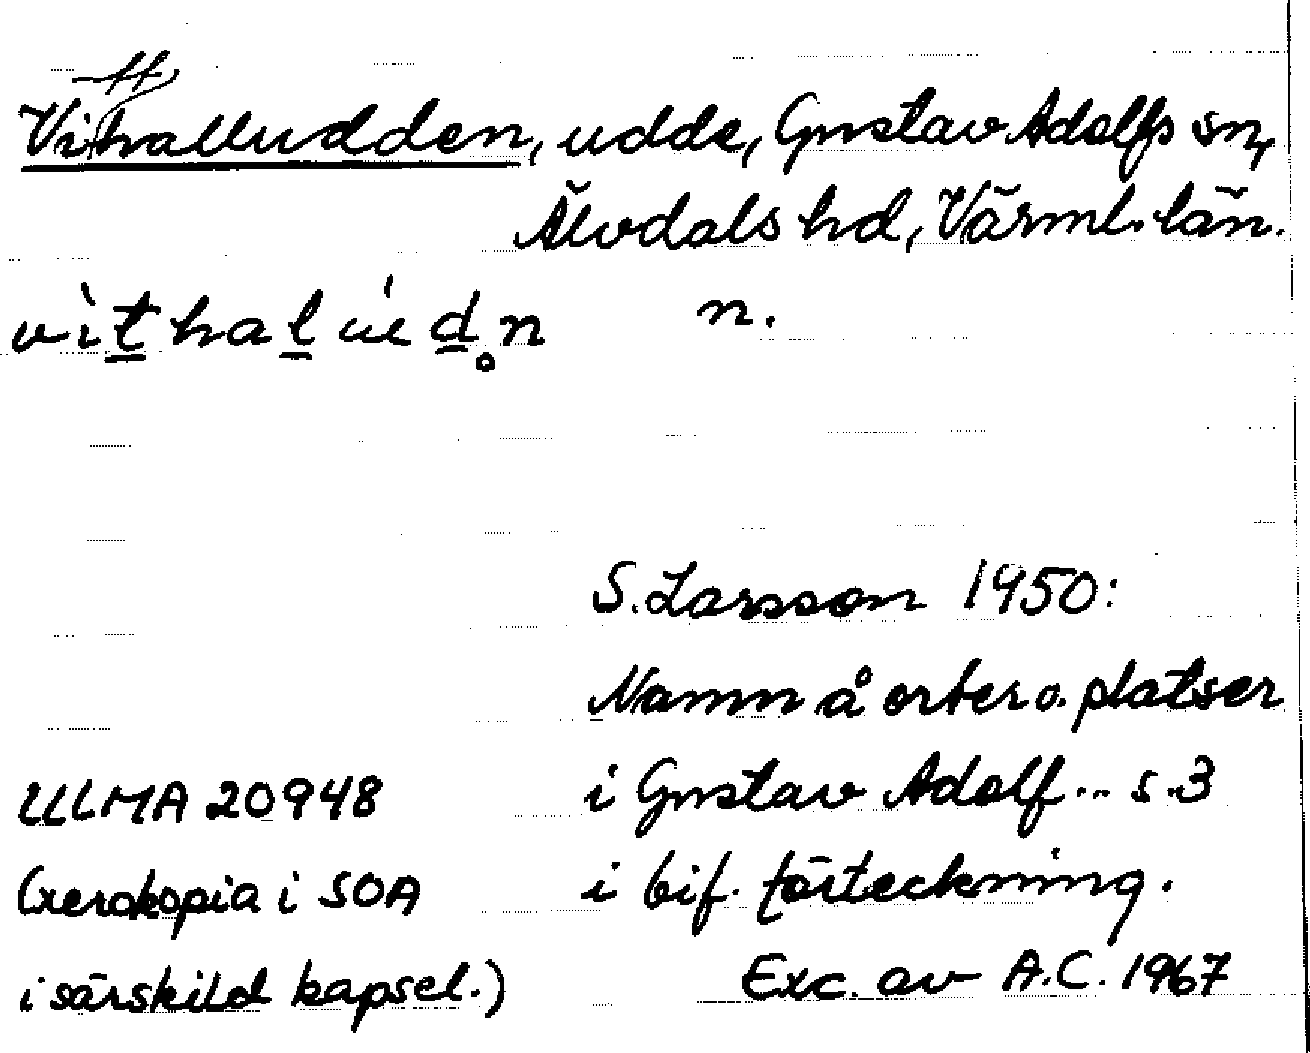 tt
Vithalludden, udde, Gustav Adolfs sn,
Älvdals hd, Värml. län.
vìt̲hal̲ùéd̲n̥ n.
S. Larsson 1950:
Namn å orter o. platser
ULMA 20948 i Gustav Adolf... s. 3
(xerokopia i SOA i bif. förteckning.
i särskild kapsel.) Exc. av A.C. 1967